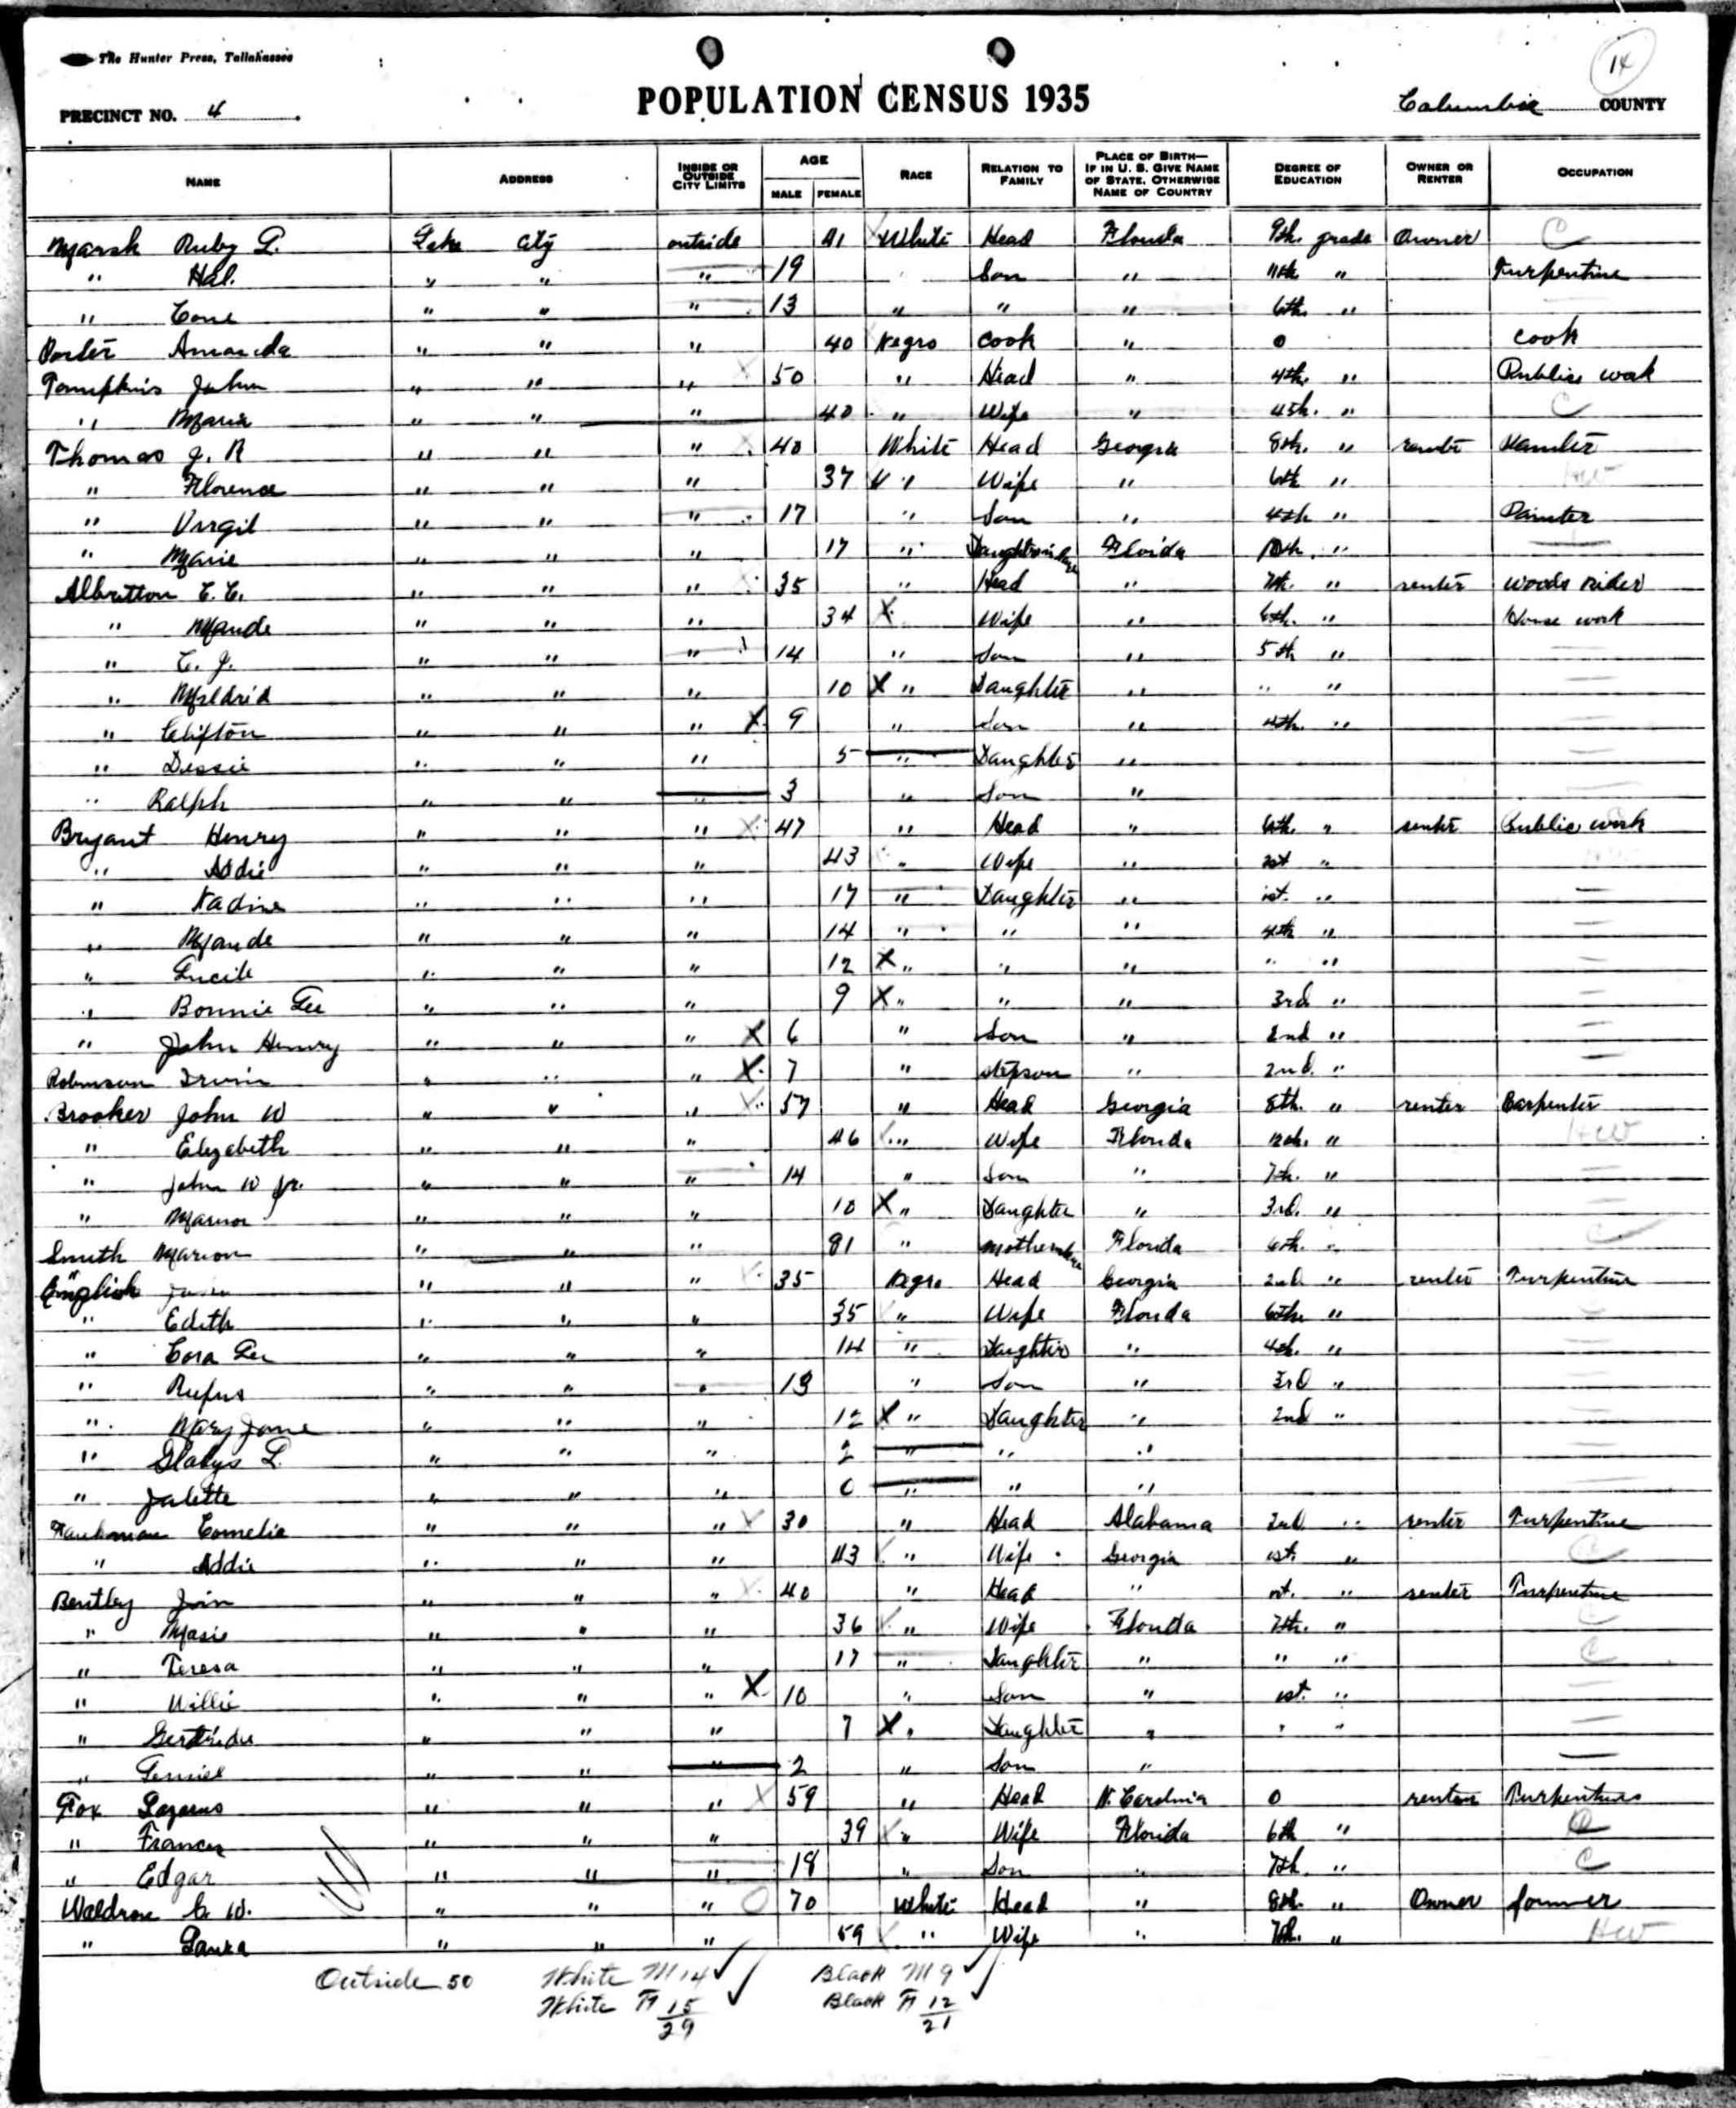 The Hunter Press, Tallahassee
14
PRECINCT NO. 4
POPULATION CENSUS 1935
Columbia COUNTY
NAME ADDRESS INSIDE OR OUTSIDE CITY LIMITS AGE MALE FEMALE RACE RELATION TO FAMILY PLACE OF BIRTH—IF IN U. S. GIVE NAME OF STATE. OTHERWISE NAME OF COUNTRY DEGREE OF EDUCATION OWNER OR RENTER OCCUPATION
Marsh Ruby L. Lake City outside 41 White Head Florida 9th. grade Owner C
" Hal. " " " 19 Son " 11th " Turpentine
" Cone " " " 13 " " " 6th. "
Porter Amanda " " " 40 Negro Cook " 0 Cook
Tompkins John " " " 50 " Head " 4th. " Public work
" Maria " " " 40 " Wife " 45h. " C
Thomas J. R " " " 40 White Head Georgia 8th. " renter Painter
" Florence " " " 37 " Wife " 6th " HW
" Virgil " " " 17 " Son " 4th " Painter
" Marie " " " 17 " Daughter in law Florida 10th. "
Albritton C. C. " " " 35 " Head " 7th. " renter woods rider
" Maude " " " 34 X Wife " 6th. " House work
" C. J. " " " 14 " Son " 5th "
" Mildrid " " " 10 X " Daughter " " "
" Clifton " " " X 9 " Son " 4th. "
" Dessie " " " 5 " Daughter "
" Ralph " " " 3 " Son "
Bryant Henry " " " 47 " Head " 6th. " renter Public work
" Addie " " " 43 " Wife " 1st "
" Nadine " " " 17 " Daughter " 1st. "
" Maude " " " 14 " " " 4th "
" Lucile " " " 12 X " " " " "
" Bonnie Lee " " " 9 X " " " 3rd "
" John Henry " " " X 6 " Son " 2nd "
Robinson Irvin " " " X 7 " stepson " 2nd. "
Brooker John W " " " 57 " Head Georgia 8th. " renter Carpenter
" Elizabeth " " " 46 " Wife Florida 12th. " HW
" John W Jr. " " " 14 " Son " 7th. "
" Marion " " " 10 X " Daughter " 3rd. "
Smith Marion " " " 81 " mother in law Florida 6th. " C
English " " " 35 Negro Head Georgia 2nd " renter Turpentine
" Edith " " " 35 " Wife Florida 6th "
" Cora Lee " " " 14 " Daughter " 4th. "
" Rufus " " " 13 " Son " 3rd "
" Mary Jane " " " 12 X " Daughter " 2nd "
" Gladys L. " " " 2 " " "
" Julette " " " 0 " " "
Cornelie " " " 30 " Head Alabama 2nd. " renter Turpentine
" Addie " " " 43 " Wife Georgia 1st. " C
Bentley Join " " " 40 " Head " 1st. " renter Turpentine
" Masie " " " 36 " Wife Florida 7th. " C
" Teresa " " " 17 " Daughter " " " C
" Willie " " " X 10 " Son " 1st. "
" Gertridu " " " 7 X " Daughter " " "
" " " " 2 " Son "
Fox Lazarus " " " 59 " Head N. Carolnia 0 renter Turpentine
" Frances " " " 39 " Wife Florida 6th " C
" Edgar " " " 18 " Son " 7th. " C
Waldron C. W. " " " 70 White Head " 8th. " Owner farmer
" Laura " " " 59 " Wife " 7th. " HW
Outside 50 White M 14 Black M 9
White F 15 Black F 12
29 21